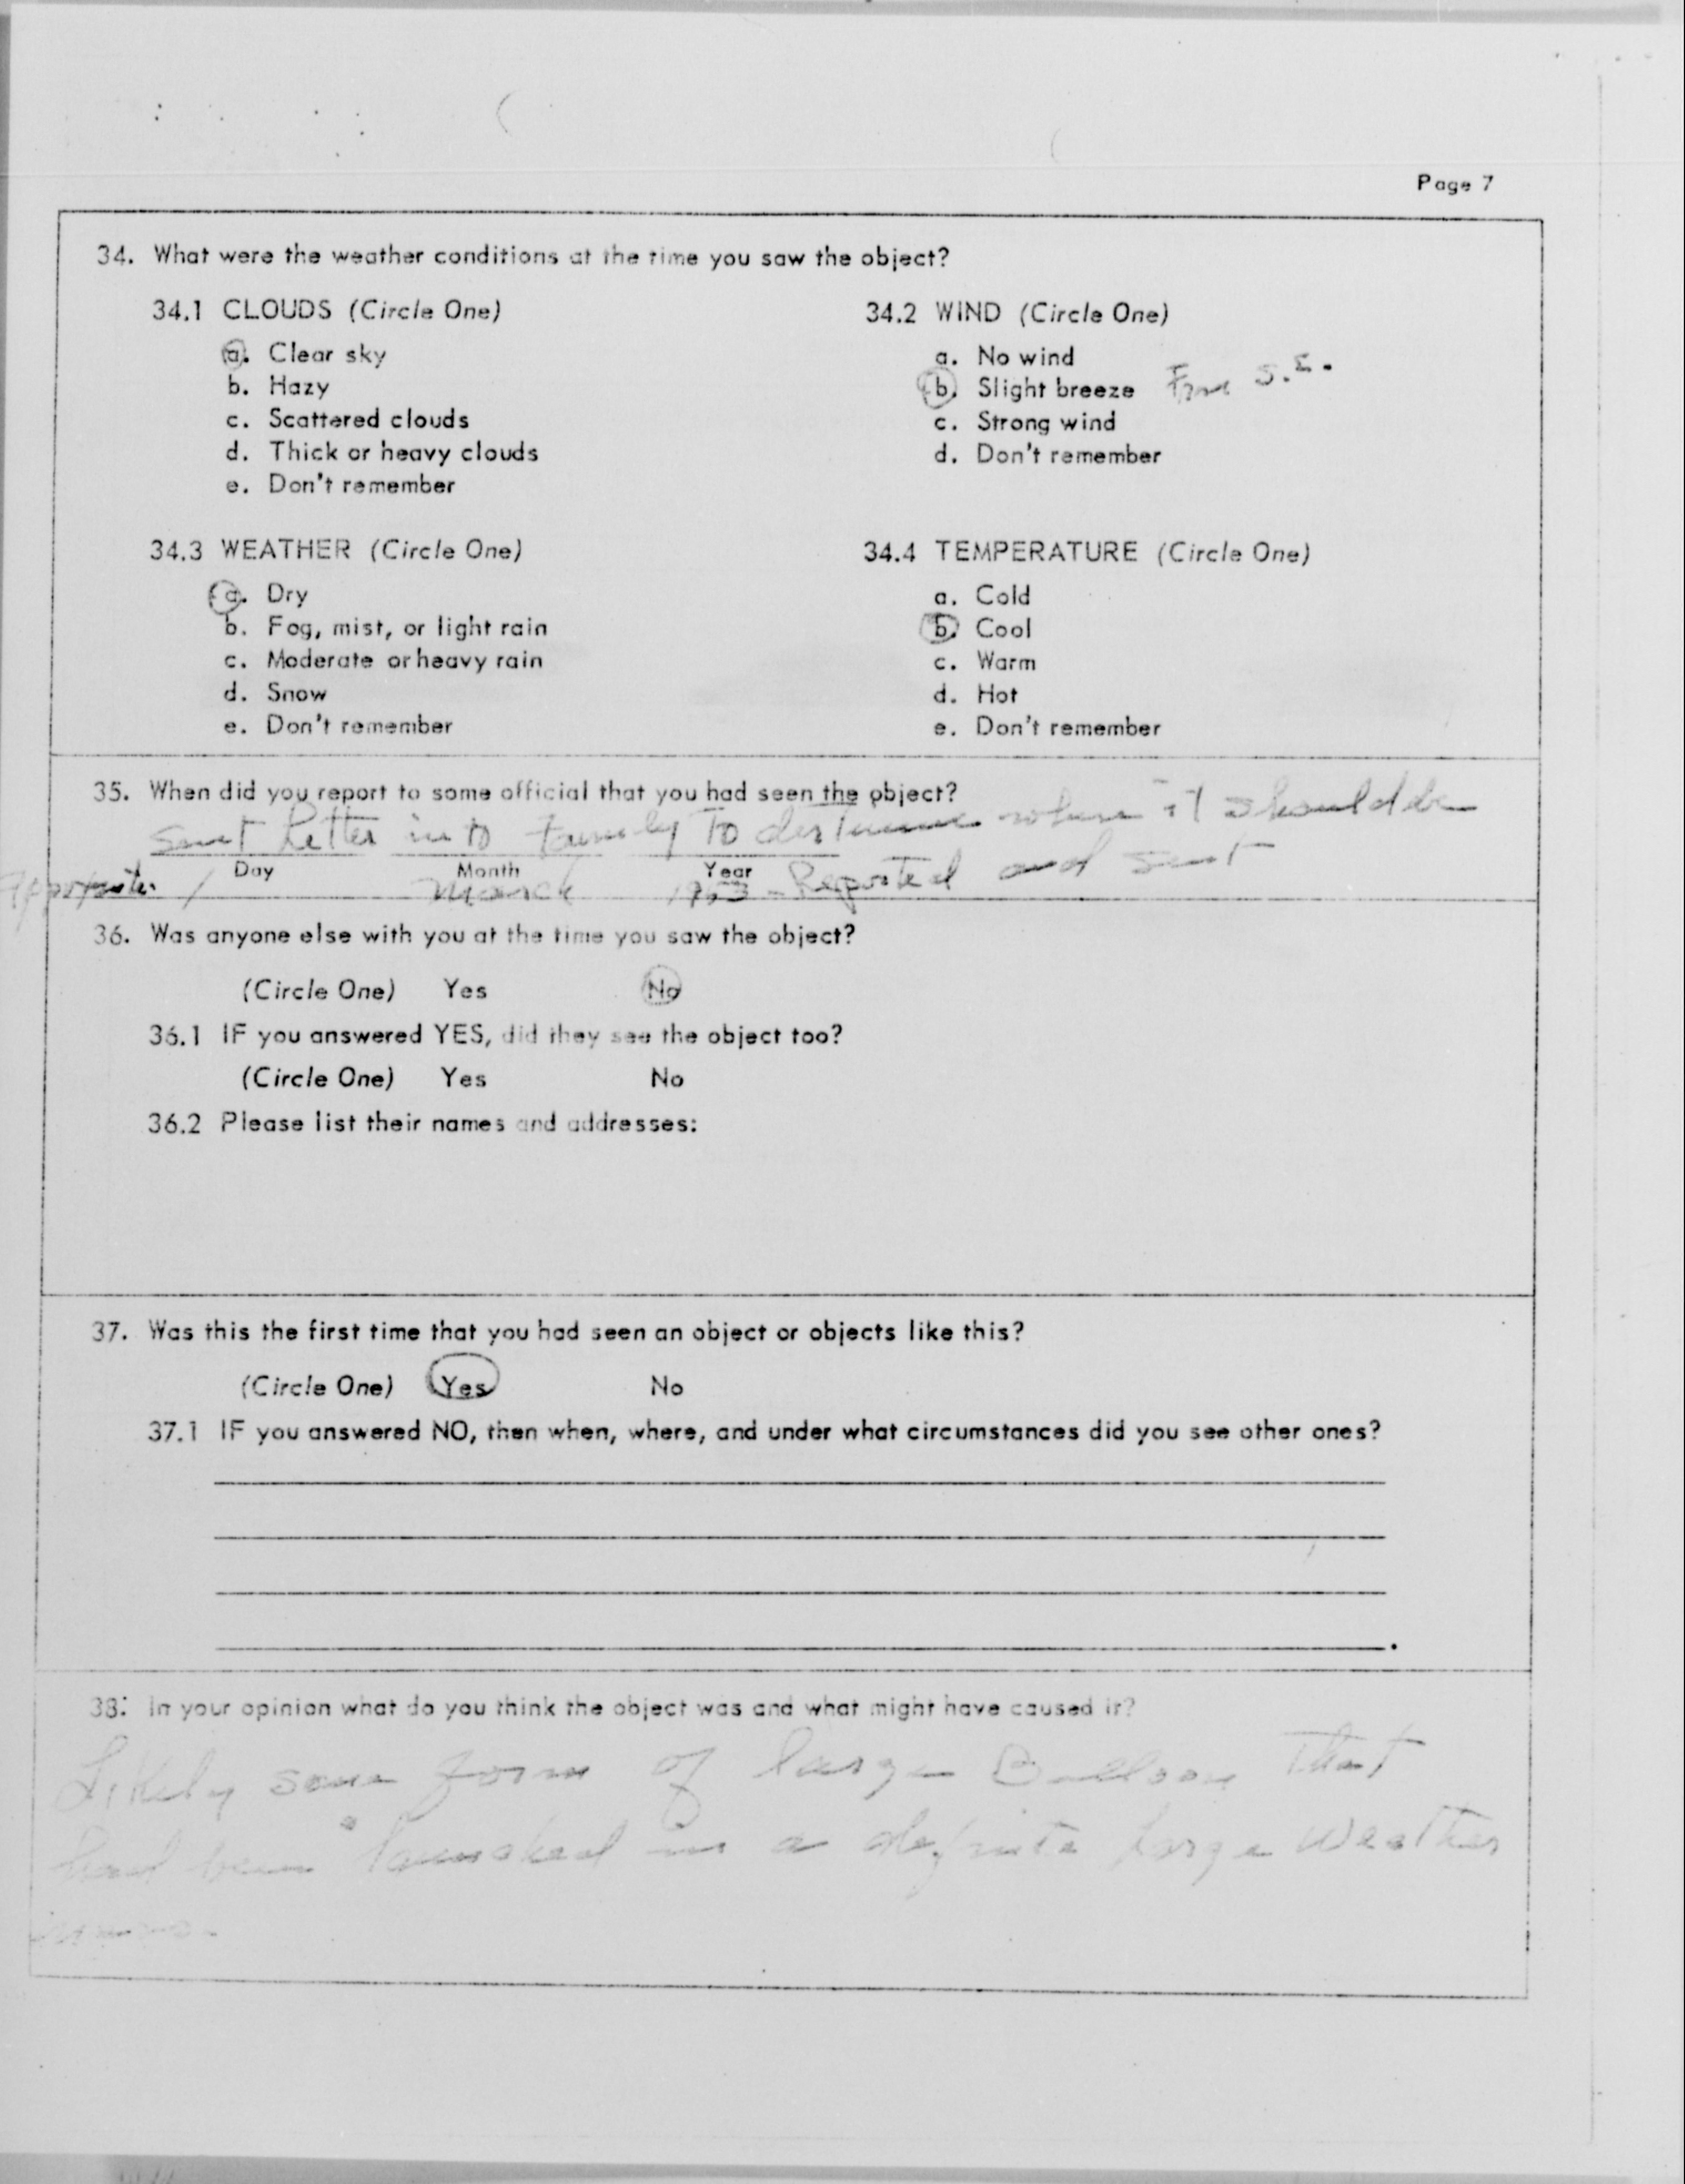 Page 7
34. What were the weather conditions at the time you saw the object?
34.1 CLOUDS (Circle One)
a. Clear sky
b. Hazy
c. Scattered clouds
d. Thick or heavy clouds
e. Don't remember
34.2 WIND (Circle One)
a. No wind
b. Slight breeze From S.E.
c. Strong wind
d. Don't remember
34.3 WEATHER (Circle One)
a. Dry
b. Fog, mist, or light rain
c. Moderate or heavy rain
d. Snow
e. Don't remember
34.4 TEMPERATURE (Circle One)
a. Cold
b. Cool
c. Warm
d. Hot
e. Don't remember
35. When did you report to some official that you had seen the object?
Sent Letter in to Family To determine where it should be
Day Month Year Reported and sent
1 March 1963
36. Was anyone else with you at the time you saw the object?
(Circle One) Yes No
36.1 IF you answered YES, did they see the object too?
(Circle One) Yes No
36.2 Please list their names and addresses:
37. Was this the first time that you had seen an object or objects like this?
(Circle One) Yes No
37.1 IF you answered NO, then when, where, and under what circumstances did you see other ones?
38. In your opinion what do you think the object was and what might have caused it?
Likely some form of large Balloon That
had been launched in a definite large weather